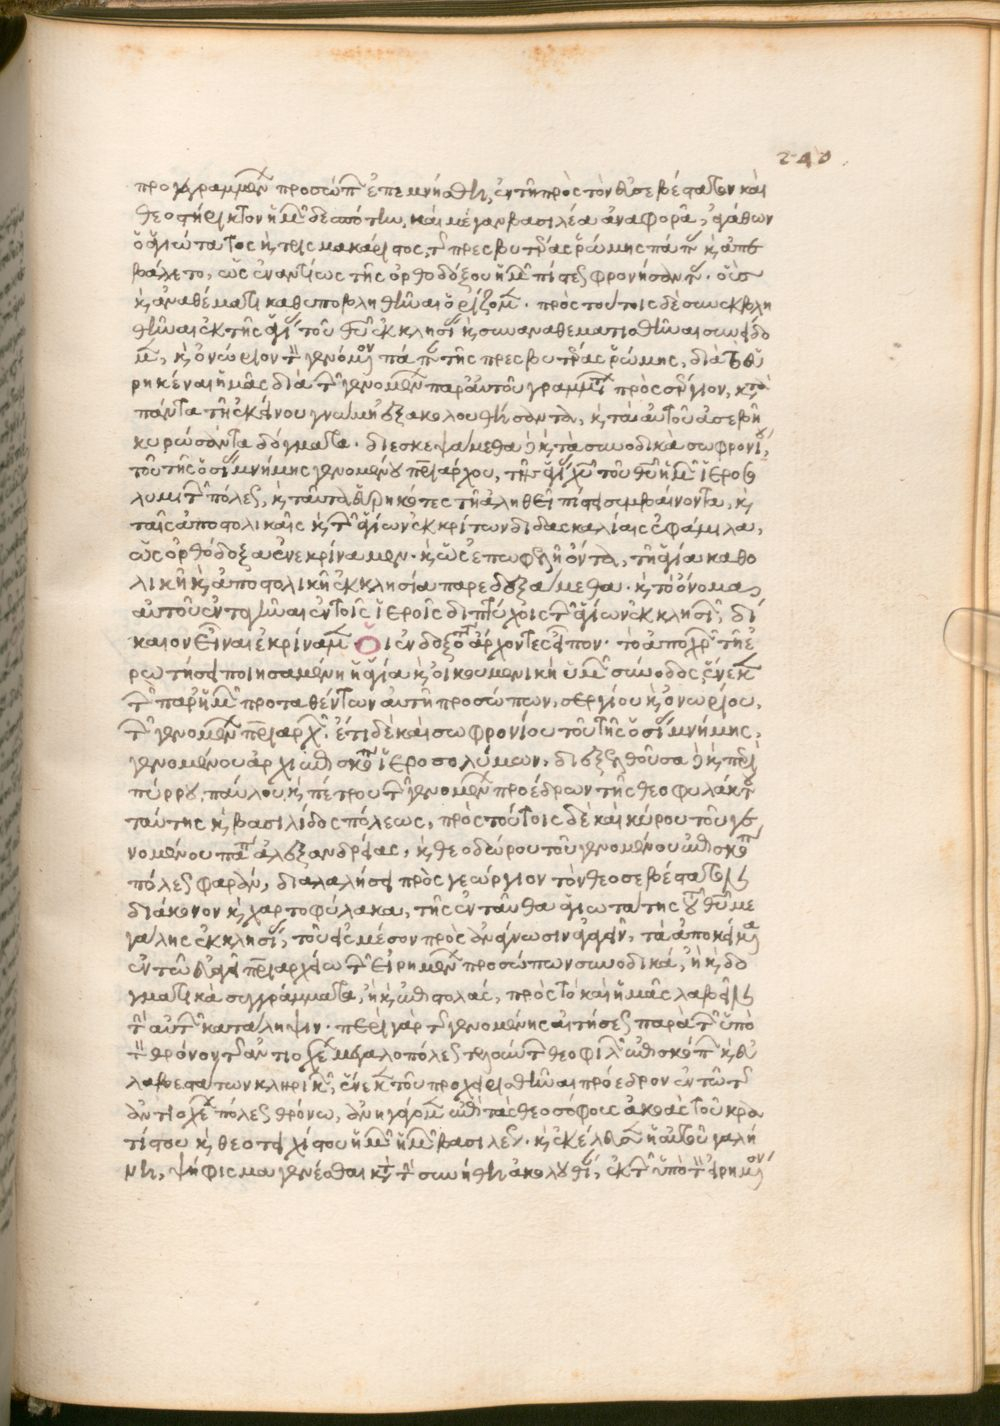 240
προγραμμένων προσώπων ἐπεμνήσθη, ἐν τῆ πρὸς τὸν εὐσεβέστατον καὶ
θεοστήρικτον ἡμῶν δεσπότην, καὶ μέγαν βασιλέα ἀναφορᾶ, ἀγάθων
ὁ ἁγιώτατος καὶ τρισμακάριστος, τῆς πρεσβυτέρας ῥώμης πάπας καὶ ἀπε
βάλετο, ὡς ἐναντίως τῆς ὀρθοδόξου ἡμῶν πίστεως φρονήσαντας· οὓς
καὶ ἀναθέματι καθυποβληθῆναι ὁρίζομεν· πρὸς τούτοις δὲ συνεκβλη
θῆναι ἐκ τῆς ἁγίας τοῦ θεοῦ ἐκκλησίας καὶ συναναθεματισθῆναι συνείδο
μεν, καὶ ὀνώριον τὸν γενόμενον πάπαν τῆς πρεσβυτέρας ῥώμης, διὰ τὸ εὑ
ρηκέναι ἡμᾶς διὰ τῶν γενομένων παρ' αὐτοῦ γραμμάτων πρὸς σέργιον, κατὰ
πάντα τῆ ἐκείνου γνώμη ἐξακολουθήσαντα, καὶ τὰ αὐτοῦ ἀσεβῆ
κυρώσαντα δόγματα· διεσκεψάμεθα δὲ καὶ τὰ συνοδικὰ σωφρονίου,
τοῦ τῆς ὁσίας μνήμης γενομένου πατριάρχου, τῆς ἁγίας χριστοῦ τοῦ θεοῦ ἡμῶν ἱεροσο
λυμιτῶν πόλεως, καὶ ταῦτα εὑρηκότες τῆ ἀληθεῖ πίστει συμβαίνοντα, καὶ
ταῖς ἀποστολικαῖς καὶ τῶν ἁγίων ἐκκρίτων διδασκαλίαις ἐφάμιλλα,
ὡς ὀρθόδοξα ἐνεκρίναμεν· καὶ ὡς ἐπωφελῆ ὄντα, τῆ ἁγία καθο
λικῆ καὶ ἀποστολικῆ ἐκκλησία παρεδεξάμεθα· καὶ τὸ ὄνομα
αὐτοῦ ἐνταγῆναι ἐν τοῖς ἱεροῖς διπτύχοις τῶν ἁγίων ἐκκλησιῶν, δί
καιον εἶναι ἐκρίναμεν· Οἱ ἐνδοξότατοι ἄρχοντες εἶπον· τὸ ἀπόχρων τῆ ἐ
ρωτήσει ποιησαμένη ἡ ἁγία καὶ οἰκουμενικὴ ὑμῶν σύνοδος ἕνεκεν
τῶν παρ' ἡμῶν προταθέντων αὐτῆ προσώπων, σεργίου καὶ ὀνωρίου,
τῶν γενομένων πατριαρχῶν, ἔτι δὲ καὶ σωφρονίου τοῦ τῆς ὁσίας μνήμης,
γενομένου ἀρχιεπισκόπου ἱεροσολύμων, διεξελθοῦσα δὲ καὶ περὶ
πύρρου, παύλου, καὶ πέτρου τῶν γενομένων προέδρων τῆς θεοφυλάκτου
ταύτης καὶ βασιλίδος πόλεως, πρὸς τούτοις δὲ καὶ κύρου τοῦ γε
νομένου πάπα ἀλεξανδρείας, καὶ θεοδώρου τοῦ γενομένου ἐπισκόπου
πόλεως φαράν, διαλαλήσει πρὸς γεώργιον τὸν θεοσεβέστατον
διάκονον καὶ χαρτοφύλακα, τῆς ἐνταῦθα ἁγιωτάτης τοῦ θεοῦ με
γάλης ἐκκλησίας, τοῦ εἰς μέσον πρὸς ἀνάγνωσιν ἀγαγεῖν, τὰ ἀποκείμενα
ἐν τῶ εὐαγεῖ πατριαρχείω τῶν εἰρημένων προσώπων συνοδικά, ἢ καὶ δο
γματικὰ συγγράμματα, ἢ καὶ ἐπιστολάς, πρὸς τὸ καὶ ἡμᾶς λαβεῖν
τὴν αὐτῶν κατάληψιν· περὶ γὰρ τῆς γενομένης αἰτήσεως παρὰ τῶν ὑπὸ
τὸν θρόνον τῆς ἀντιοχέων μεγαλοπόλεως τελούντων θεοφιλῶν ἐπισκόπων καὶ εὐ
λαβεστάτων κληρικῶν, ἕνεκεν τοῦ προχειρισθῆναι πρόεδρον ἐν τῶ τῆς
ἀντιοχέων πόλεως θρόνω, ἀνηγάγομεν ἐπὶ τὰς θεοσόφους ἀκοὰς τοῦ κρα
τίστου καὶ θεοστηρίκτου ἡμῶν βασιλέως· καὶ ἐκέλευσεν ἡ αὐτοῦ γαλή
νη, ψήφισμα γενέσθαι κατὰ τὴν συνήθη ἀκολουθίαν, ἐκ τῶν ὑπὸ τὸν εἰρημένον